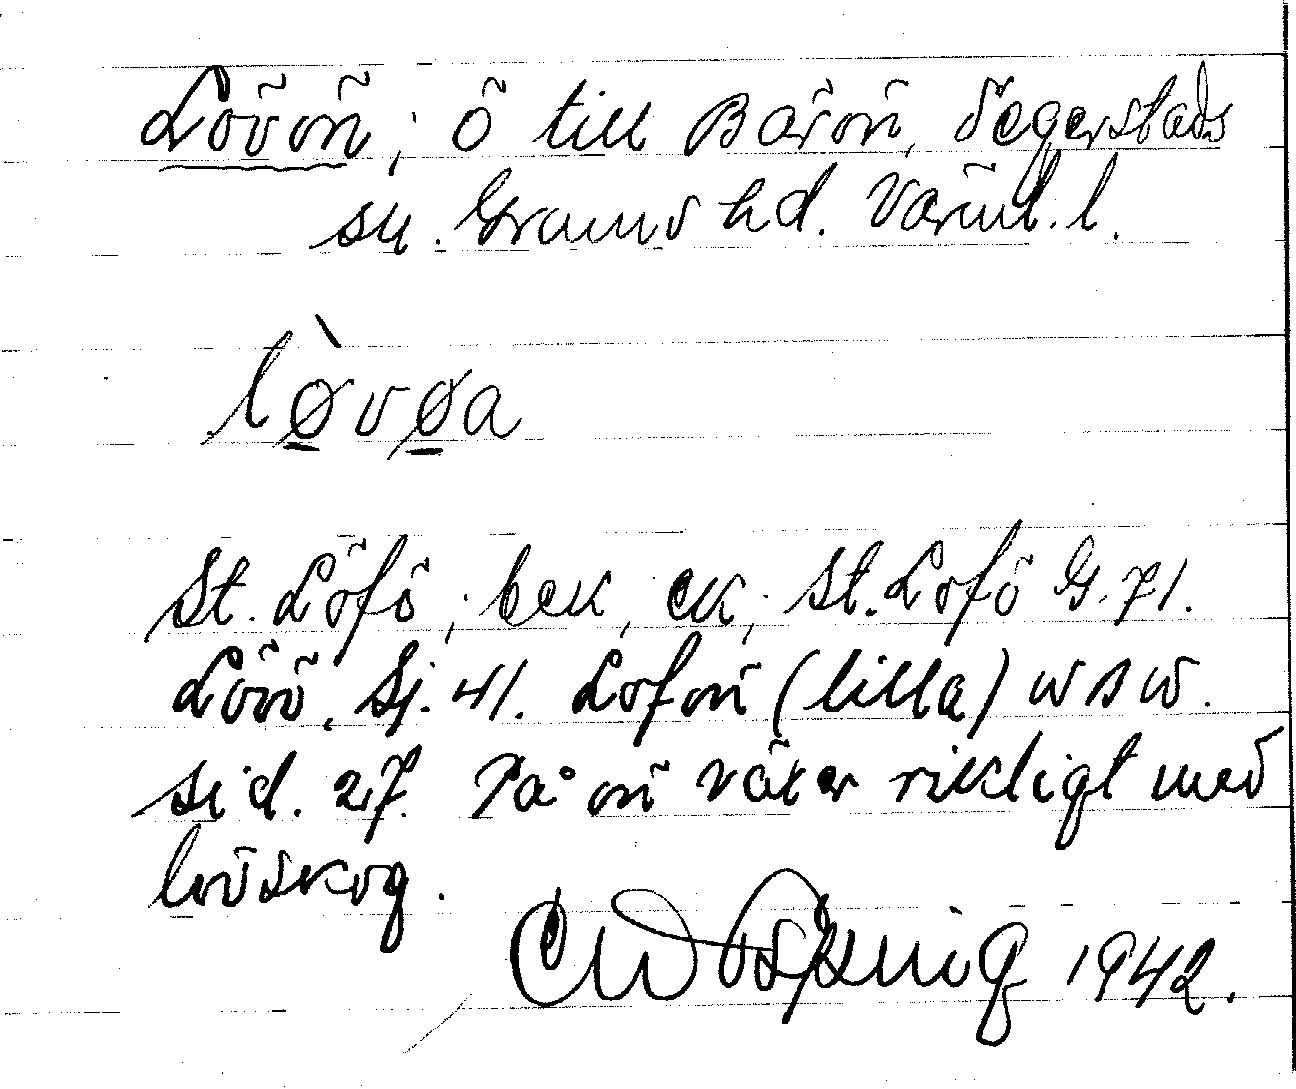 Lövön; ö till Bärön, Segerstads
sn. Grums hd. Värml. l.
lø̀vøa
St. Löfö; bek, ek; St. Lofö G. 71.
Lövö, Sj. 41. Lofön (lilla) W s W.
sid. 27. På ön växer rikligt med
lövskog.
1942.